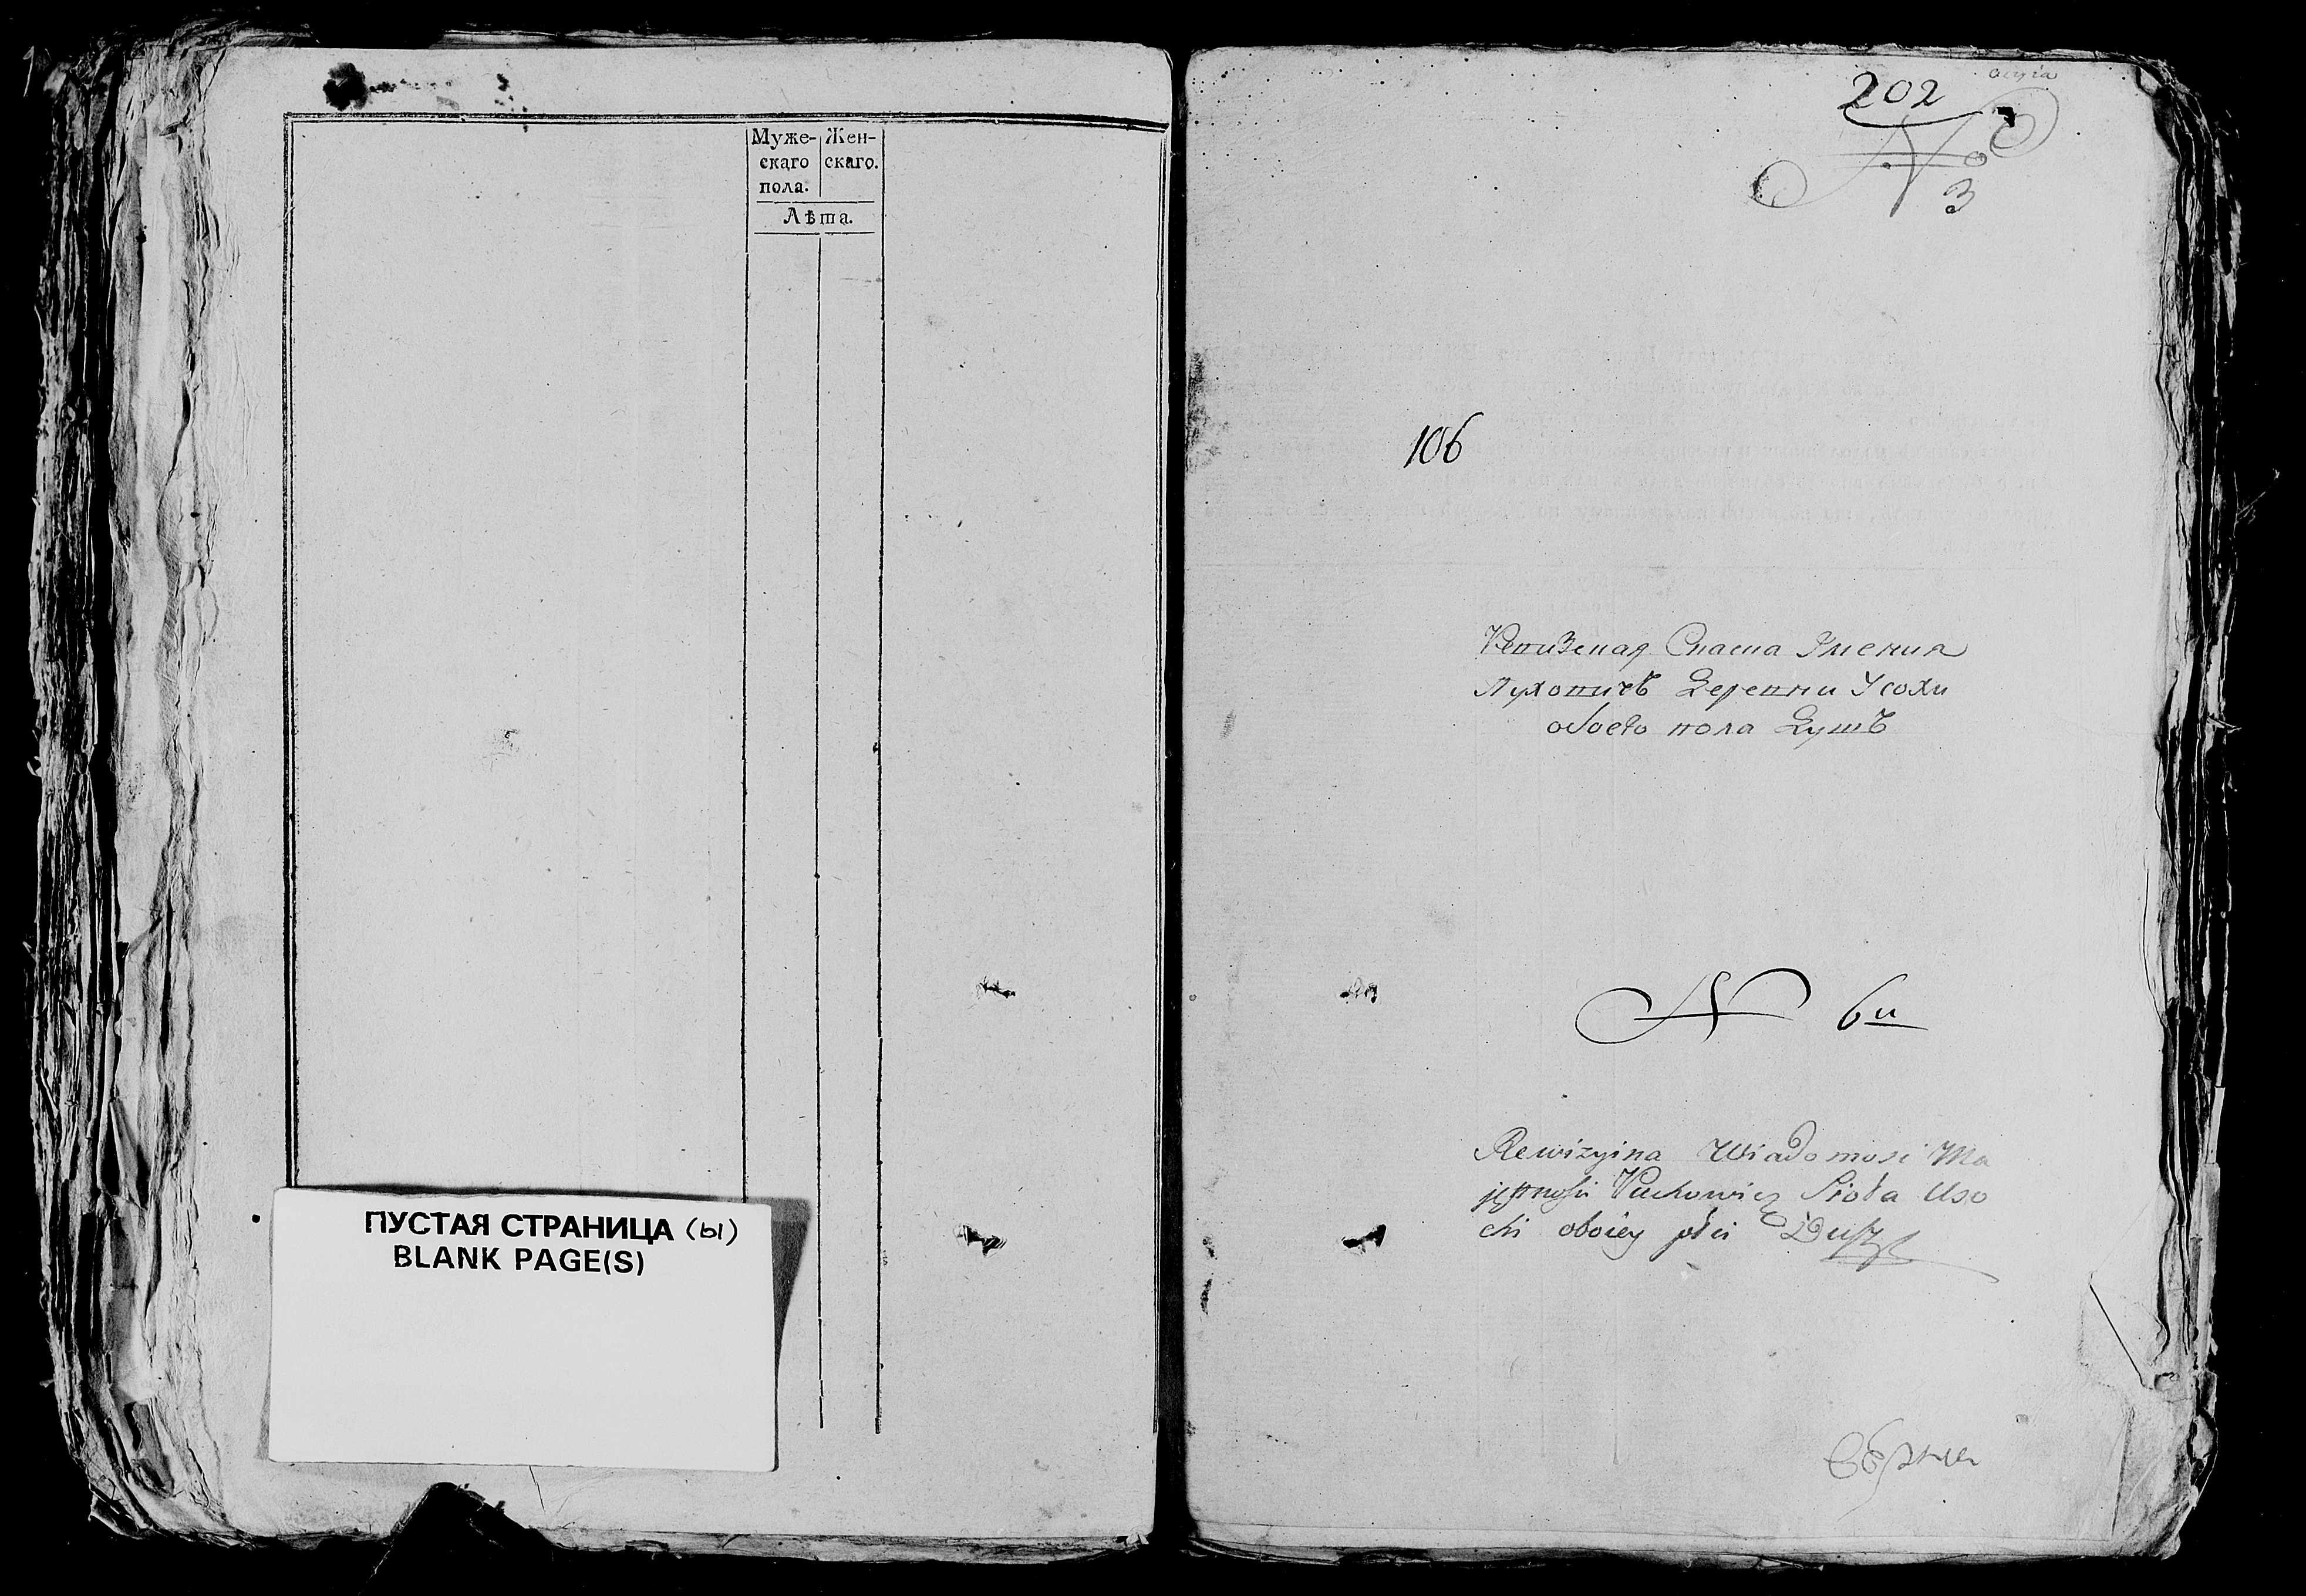 Муже- Жен-
скаго скаго.
пола.
Лѣта.
ПУСТАЯ СТРАНИЦА (ы)
BLANK PAGE(S)
202
№
3
106
Ревизская Сказка Имения
Пуховичъ Деревни Усохи
обоего пола Душъ
N 6й
Rewizyina Wiadomosc Ma
jętnosci Puchowicz Sioła Uso
chi oboiey płci Dusz